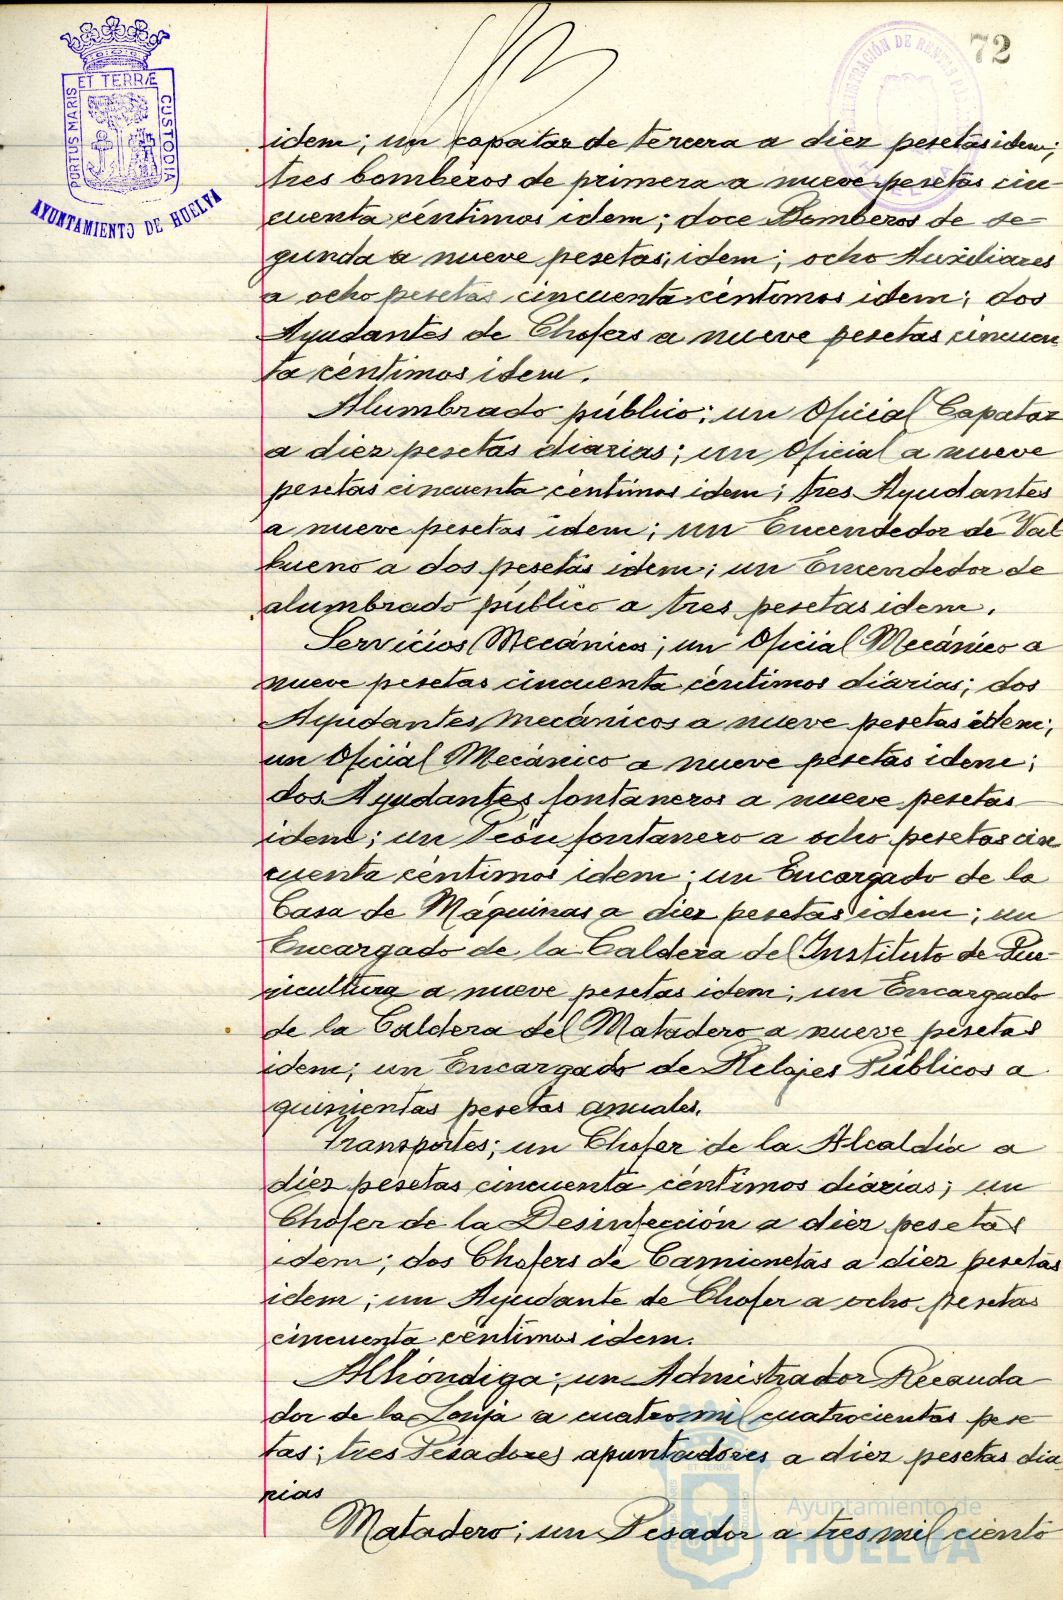 72
PORTUS MARIS ET TERRÆ CUSTODIA
AYUNTAMIENTO DE HUELVA
idem; un capataz de tercera a diez pesetas idem;
tres bomberos de primera a nueve pesetas cin
cuenta céntimos idem; doce Bomberos de se-
gunda a nueve pesetas idem; ocho Auxiliares
a ocho pesetas cincuenta céntimos idem; dos
Ayudantes de Chofers a nueve pesetas cincuen
ta céntimos idem.
Alumbrado público; un Oficial Capataz
a diez pesetas diarias; un Oficial a nueve
pesetas cincuenta céntimos idem; tres Ayudantes
a nueve pesetas idem; un Encendedor de Val
bueno a dos pesetas idem; un Encendedor de
alumbrado público a tres pesetas idem.
Servicios Mecánicos; un Oficial Mecánico a
nueve pesetas cincuenta céntimos diarias; dos
Ayudantes Mecánicos a nueve pesetas idem;
un Oficial Mecánico a nueve pesetas idem;
dos Ayudantes fontaneros a nueve pesetas
idem; un Peón fontanero a ocho pesetas cin
cuenta céntimos idem; un Encargado de la
Casa de Máquinas a diez pesetas idem; un
Encargado de la Caldera del Instituto de Pue-
ricultura a nueve pesetas idem; un Encargado
de la Caldera del Matadero a nueve pesetas
idem; un Encargado de Relojes Públicos a
quinientas pesetas anuales.
Transportes; un Chofer de la Alcaldía a
diez pesetas cincuenta céntimos diarias; un
Chofer de la Desinfección a diez pesetas
idem; dos Chofers de Camionetas a diez pesetas
idem; un Ayudante de Chofer a ocho pesetas
cincuenta céntimos idem.
Alhóndiga; un Admistrador Recauda
dor de la Lonja a cuatro mil cuatrocientas pese
tas; tres Pesadores apuntadores a diez pesetas dia
rias
Matadero; un Pesador a tres mil ciento
Ayuntamiento de
HUELVA